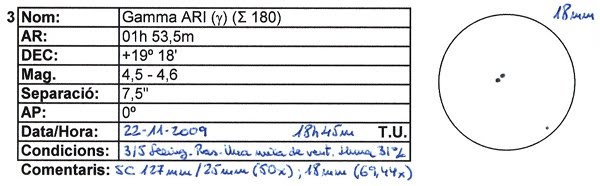 18mm
3 Nom: Gamma ARI (γ) (Σ 180)
AR: 01h 53,5m
DEC: +19º 18'
Mag. 4,5 - 4,6
Separació: 7,5"
AP: 0º
Data/Hora: 22-11-2009 18h45m T.U.
Condicions: 3/5 Seeing. Ras. Una mica de vent. Lluna 31%
Comentaris: SC 127mm / 25mm (50x) ; 18mm (69,44x)